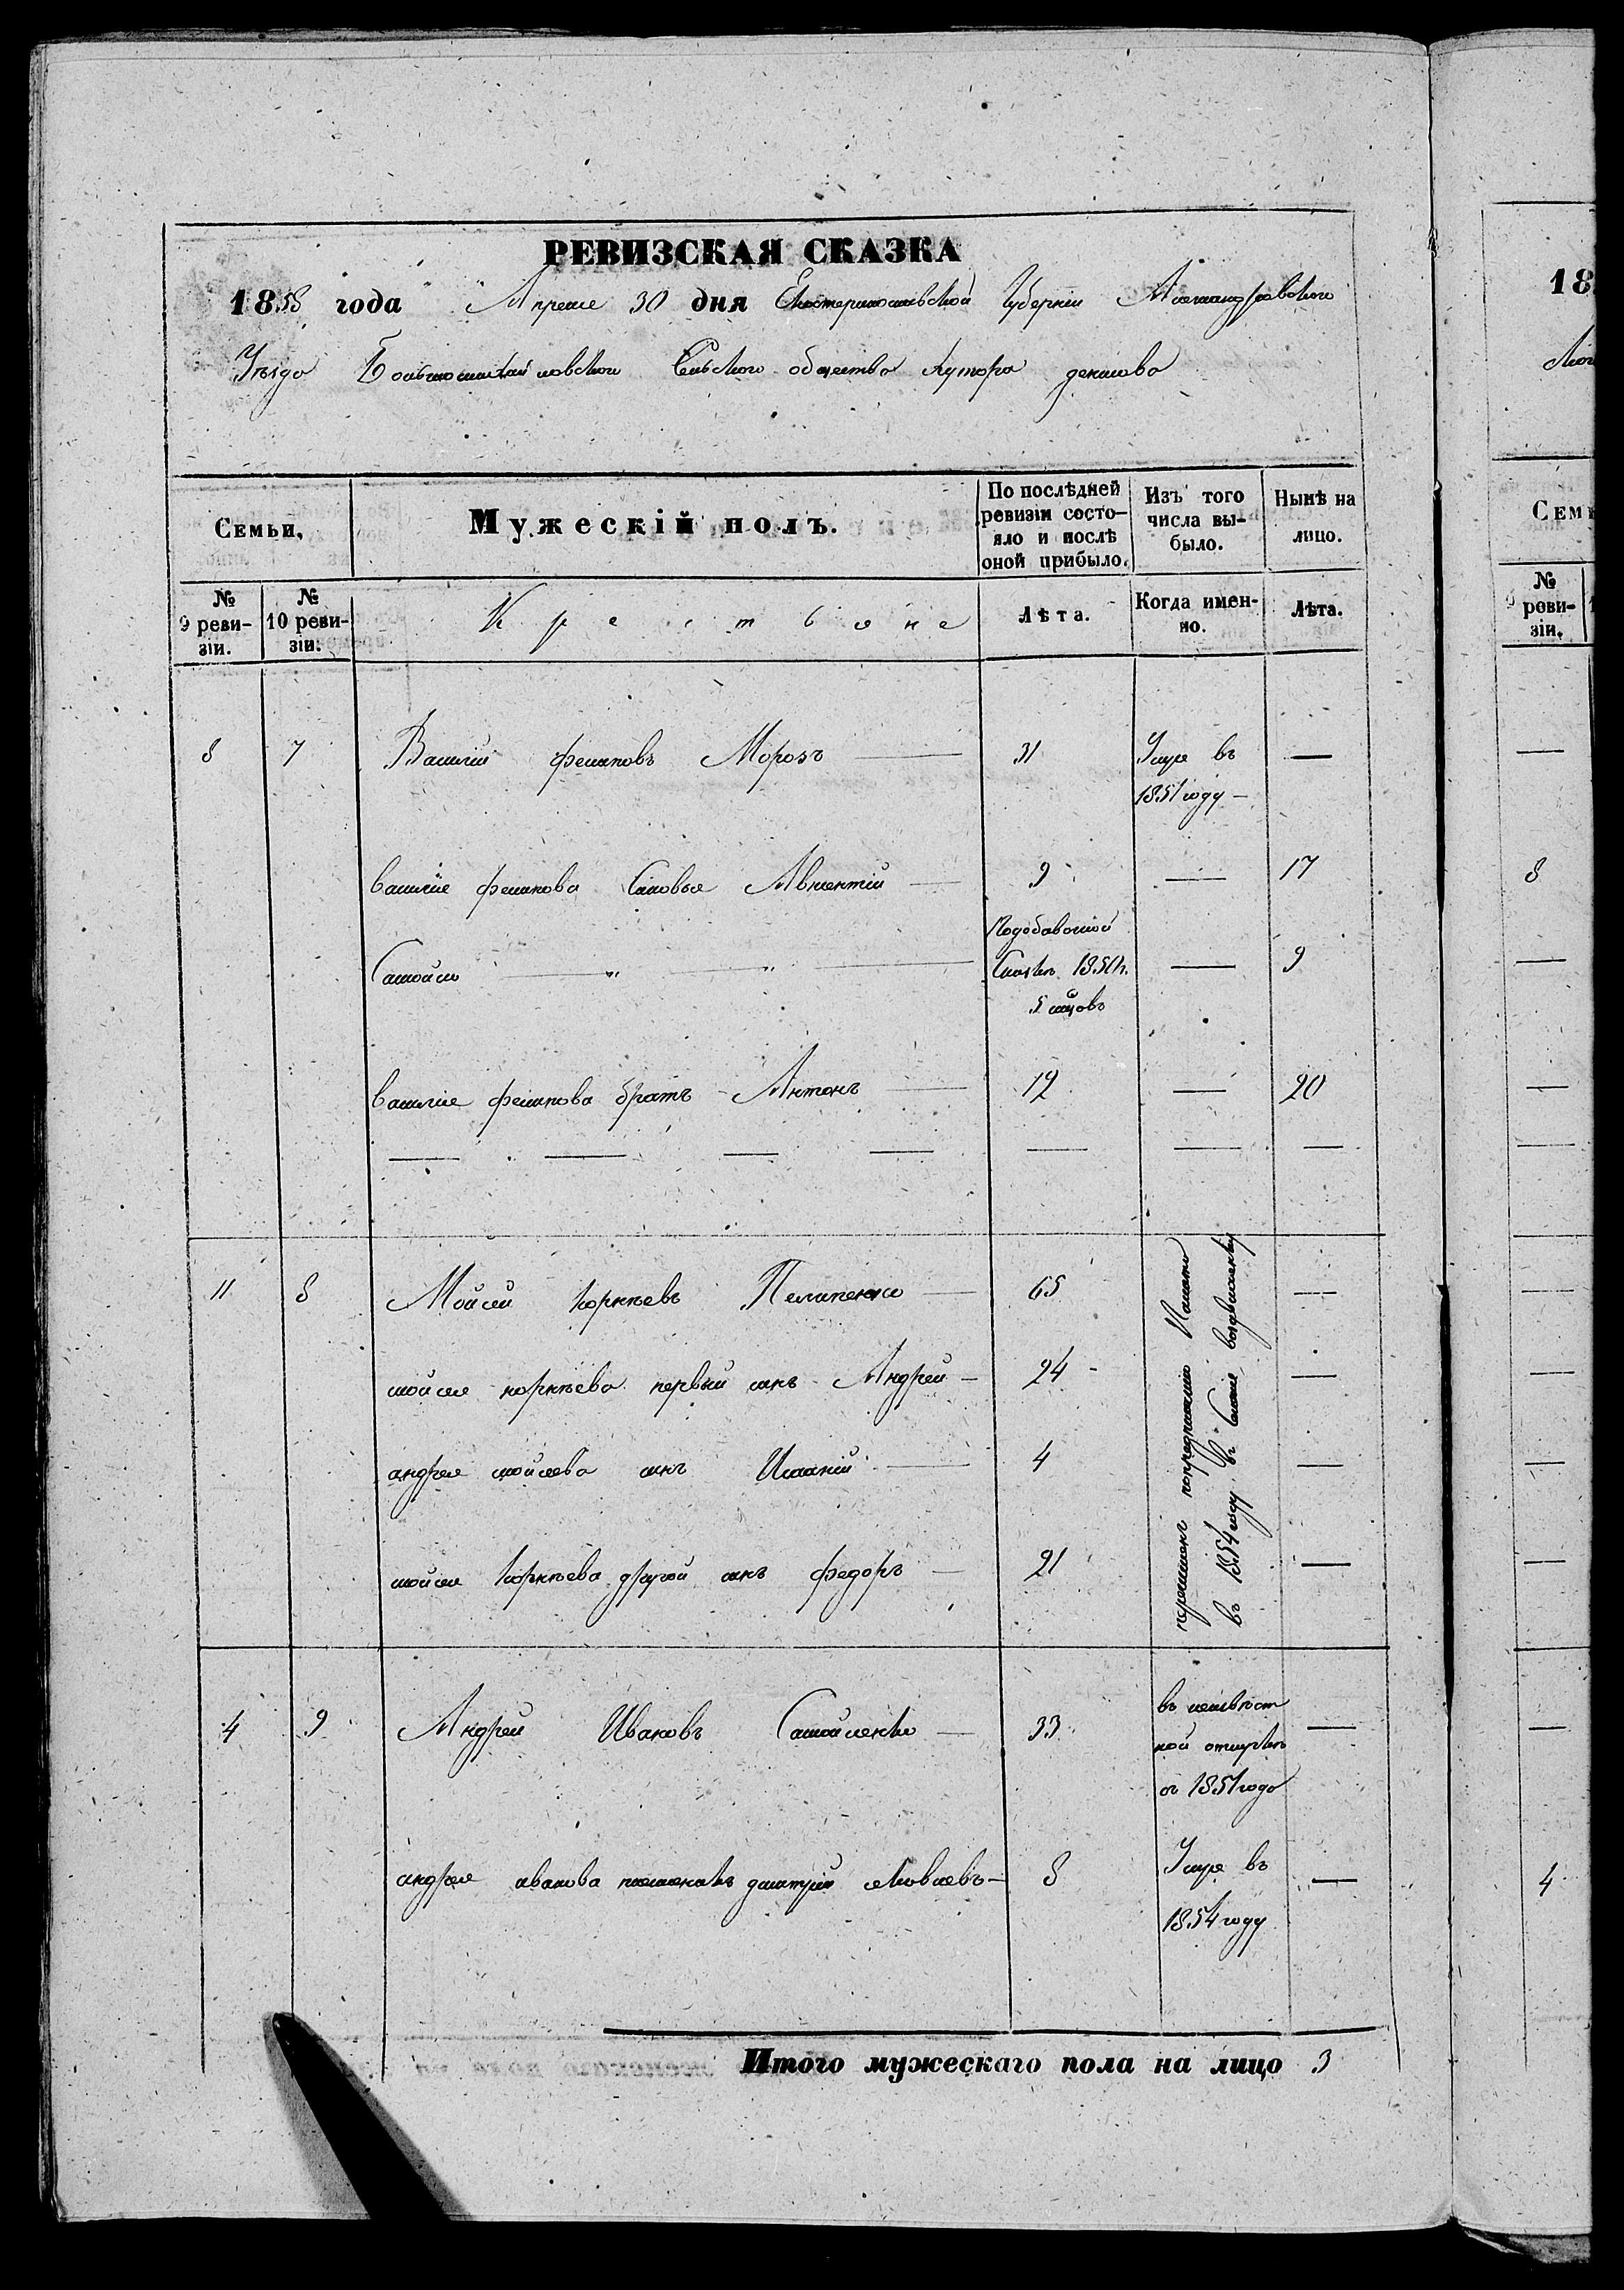 РЕВИЗСКАЯ СКАЗКА
1858 года Апреля 30 дня Екатеринославской Губернии Александровского
Уѣзда Большомихайловского Сельского общества Хутора
Семьи, Мужескій полъ. По послѣдней ревизіи состо- яло и послѣ оной прибыло. Изъ того числа вы- было. Нынѣ на лицо.
№ 9 реви- зіи. № 10 реви- зіи. Крестьяне Лѣта. Когда имен- но. Лѣта.
8 7 Василій Филиповъ Морозъ 31 Умре въ — 
1851 году
василія филипова Сыновья Авксентій 9 — 17
Самойло " " Подобавочной — 9
Сказкѣ 1850 г.
5 мцовъ
василія филипова братъ Антонъ 12 — 20
— — — — — — —
11 8 Мойсей Корнѣевъ Пелипенко 65 —
мойсея корнѣева первый снъ Андрей 24 —
андрея мойсеева снъ 4 —
мойсея Корнѣева другой снъ федоръ 21 —
перечисленъ Палаты
въ 1854 году въ воздвиженку
4 9 Андрей Ивановъ Самойленко 33 въ неизвѣст —
ной отлучкѣ
съ 1851 года
андрея иванова племянникъ дмитрій яковлевъ 8 Умре въ —
1854 году
Итого мужескаго пола на лицо 3
18
Семь
№ 9 реви- зіи.
8
4